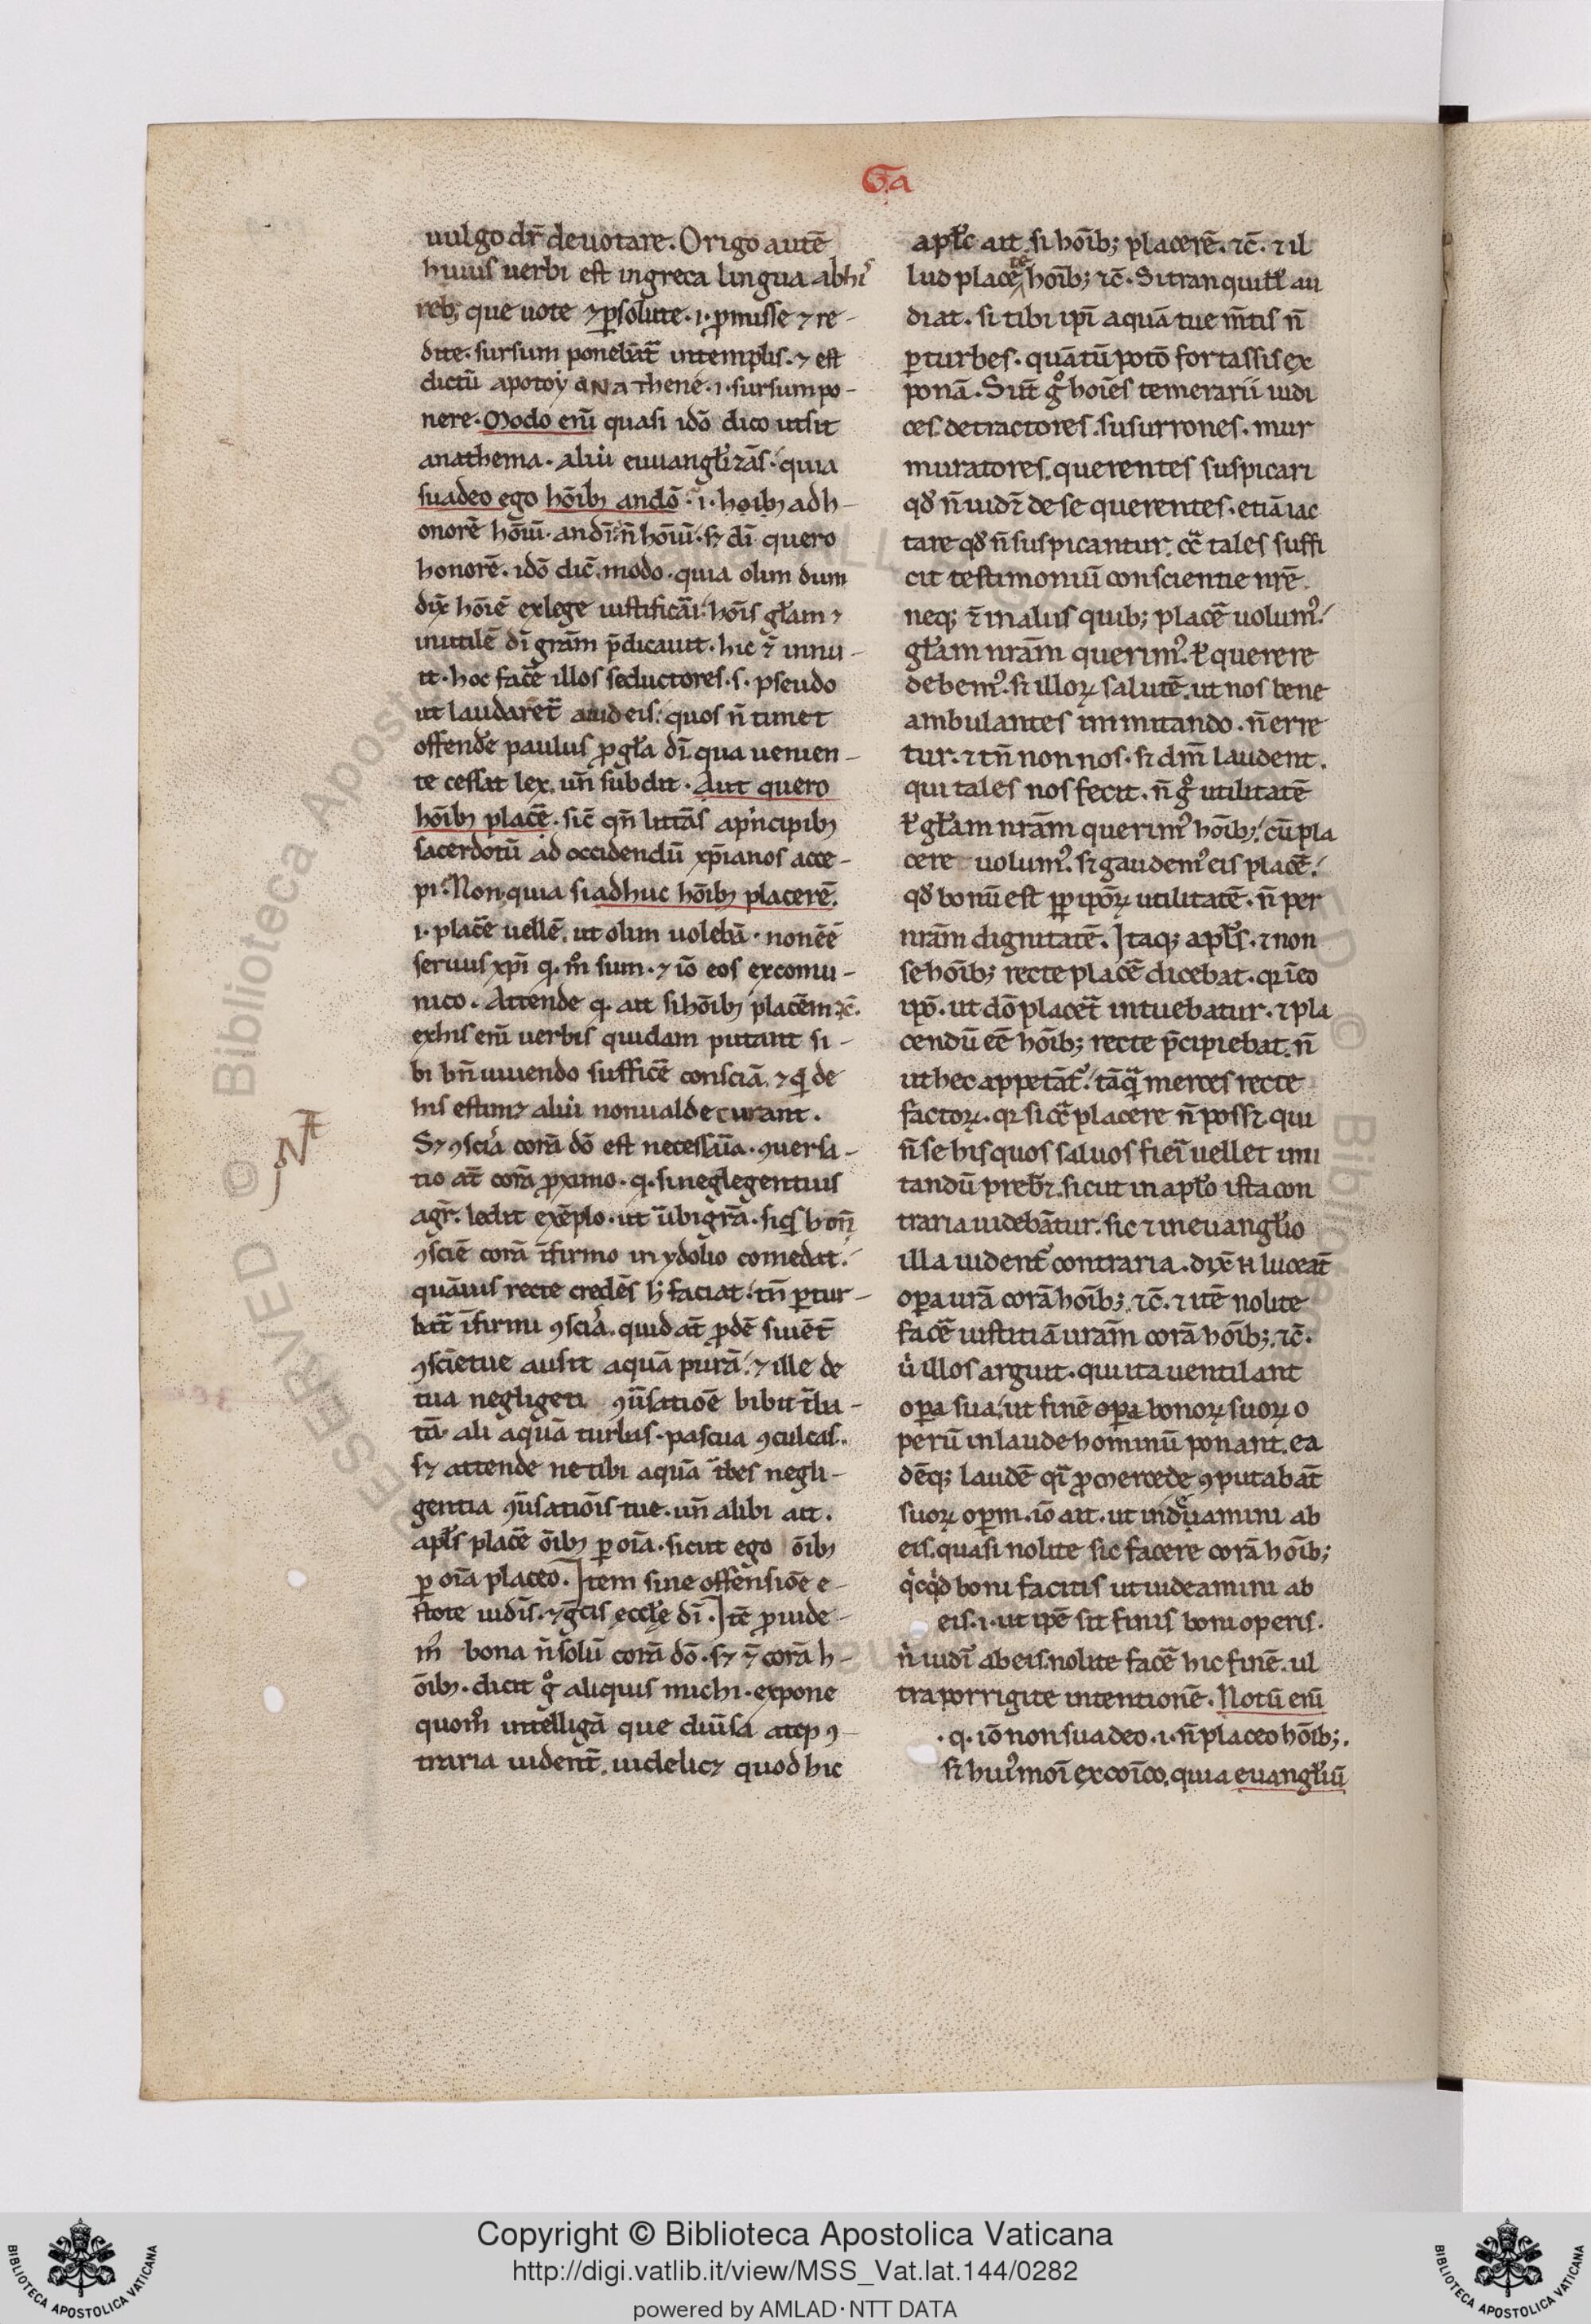 Ga
uulgo dr̄ deuotare. Origo autē
huius uerbi est in greca lingua ab hiˢ
reb; que uote ⁊ ꝑsolute .i. ꝓmisse ⁊ re-
dite. sursum ponebāt᷑ in templis. ⁊ est
dictū apotoy anathene .i. sursum po-
nere. Modo eni̅ quasi idō dico ut sit
anathema. aliu̇ euuangłizās. quia
suadeo ego hōib; an dō .i. hoib; ad h-
onorē hōiū. an di̅. n̄ hōiū. sꝫ di̅ quero
honorē. idō dic̄. modo. quia olim dum
dix̄ hōiē ex lege iustificāi. hōis głam ⁊
inutilē di̅ grām p̄dicauit. hic ⁊̄ innu-
it. hoc facē illos seductores .s. pseudo
ut laudaret᷑ a iudeis. quos n̄ timet
offendē paulus ꝓ gła di̅. qua uenien-
te cessat lex. un̄ subdit. Aut quero
hōib; placē. sic̄ qn̄ littās a pͥncipib;
sacerdotū ad occidendū xp̄ianos acce-
pi. Non. quia si adhuc hōib; placerē.
.i. placē uellē. ut olim uolebā. non eē
seruus xp̄i q. m̊ sum. ⁊ iō eos excomu-
nico. Attende q. ait si hōib; placēm ⁊c̄.
ex his eni̅ uerbis quidam putant si-
bi bn̄ uiuendo sufficē consciā. ⁊ qͥd de
his estimꝫ aliu̇ non ualde curant.
Sꝫ ꝯsciā corā dō est necessāia. ꝯuersa-
tio at̄ corā ꝓximo. q. si neglegentius
agr̄. ledit exēplo. ut ubi grā. siqͥs bon̄
ꝯsciē corā īfirmo in ydolio comedat.
quāuis recte credēs h̄ faciat. tn̄ ꝑtur-
bat᷑ īfirmi ꝯsciā. quid at̄ ꝓdē si uēt᷑
ꝯscīe tue ausit aquā purā. ⁊ ille de
tua negligeti ꝯu̅satiōe bibit t̄bu-
tā. ali aquā turbas. pascua ꝯculcas.
sꝫ attende ne tibi aquā t͛bes negli-
gentia ꝯu̅satiōis tue. un̄ alibi ait.
apłs placē ōib; ꝑ oīa. sicut ego ōib;
ꝑ oīa placeo. Item sine offensiōe e-
stote iudīs. ⁊ ḡtis eccłe di̅. Itē ꝓuide-
mˀ bona n̄ solū corā dō. sꝫ ⁊̄ corā h-
ōib;. dicit g̊ aliquis michi. expone
quom̊ intelligā que diūsa atqꝫ ꝯ-
traria uident᷑. uidelicꝫ quod hic
apłc ait. si hōib; placerē. ⁊c̄. ⁊ il
lud place te hōib; ⁊c̄. Si tranquill̄ au
diat. si tibi ipi̅ aquā tue mētis n̄
ꝑturbes. quātū potō fortassis ex
ponā. Sūt g̊ hoiēs temerarii iudi
ces. detractores. susurrones. mur
muratores. querentes suspicari
qd̄ n̄ uidꝫ de se querentes. etiā iac
tare qd̄ n̄ suspicantur. ꝯᵃ tales suffi
cit testimoniū conscientie nrē.
neq; ⁊̄ in aliis quib; placē uolumˀ.
głam nrām querimˀ. ł querere
debemˀ. sꝫ illoꝝ salutē. ut nos bene
ambulantes immitando. n̄ erre
tur. ⁊ tn̄ non nos. sꝫ dm̄ laudent.
qui tales nos fecit. n̄ g̊ utilitatē
ł głam nrām querimˀ hōib;. cū pla
cere uolumˀ. sꝫ gaudemˀ eis placē.
qd̄ bonū est ꝓp̄ ipōꝝ utilitatē. n̄ per
nrām dignitatē. Itaq; apłs. ⁊ non
se hōib; recte placē dicebat. qꝛ īeo
ipō. ut dō placet᷑ intuebatur. ⁊ pla
cendū eē hōib; recte p̄cipiebat. n̄
ut hec appetāt᷑. tāqᵃ merces recte
factoꝝ. qꝛ si ꝯᵃ placere n̄ possꝫ. qui
n̄ se his quos saluos fieī uellet imi
tandū prebꝫ. sicut in apło ista con
traria uidebātur. sic ⁊ in euangłio
illa uident᷑ contraria. dix̄ n̄ luceāt
oꝑa urā corā hōib;. ⁊c̄. ⁊ itē nolite
facē iustitiā urām corā hōib;. ⁊c̄.
u̇ illos arguit. qui ita uentilant
oꝑa sua. ut finē oꝑa bonoꝝ suoꝝ o
perū in laude hominū ponant. ea
dēq; laudē qͣ ꝓ mercede ꝯputabāt
suoꝝ oꝑm. iō ait. ut uideamini ab
eis. quasi nolite sic facere corā hōib;
qͥcqͥd boni facitis ut uideamini ab
eis .i. ut ipē sit finis boni operis.
n̄ uidī ab eis. nolite facē hic finē. ul
tra porrigite intentionē. Notū eni̅
.q. iō non suadeo .i. n̄ placeo hōib;.
sꝫ huiˀmoī excoīco. quia euangłiū
Copyright © Biblioteca Apostolica Vaticana
http://digi.vatlib.it/view/MSS_Vat.lat.144/0282
powered by AMLAD·NTT DATA
BIBLIOTECA APOSTOLICA VATICANA
BIBLIOTECA APOSTOLICA VATICANA